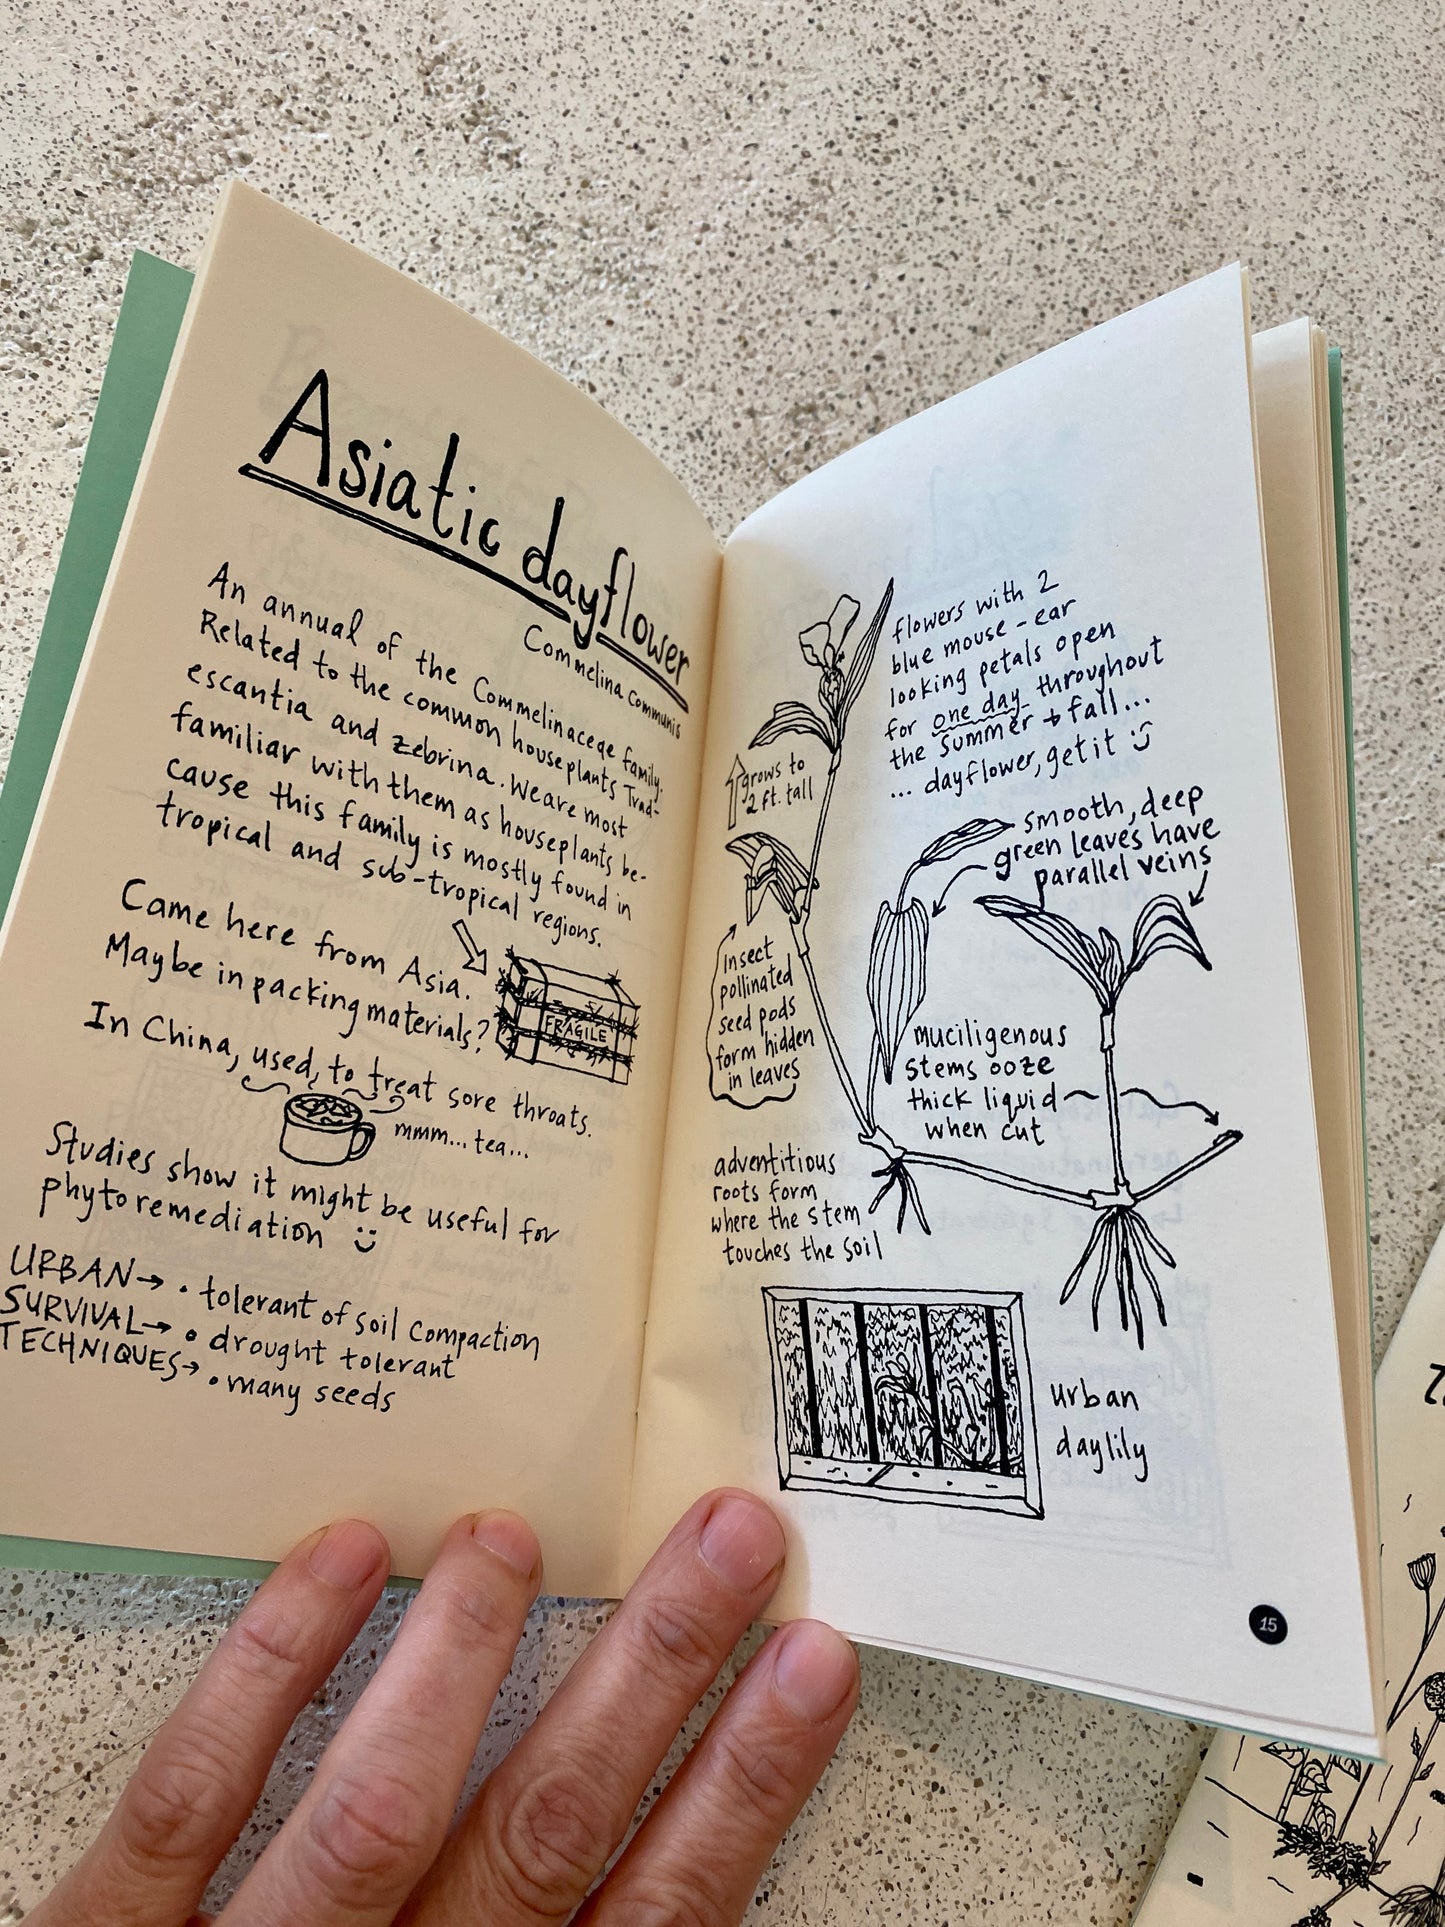 Asiatic dayflower
Commelina communis
An annual of the Commelinaceae family.
Related to the common houseplants Trad-
escantia and zebrina. We are most
familiar with them as houseplants be-
cause this family is mostly found in
tropical and sub-tropical regions.
Came here from Asia.
Maybe in packing materials?
FRAGILE
In China, used, to treat sore throats.
mmm... tea...
Studies show it might be useful for
phytoremediation
URBAN → • tolerant of soil compaction
SURVIVAL → • drought tolerant
TECHNIQUES → • many seeds
flowers with 2
blue mouse-ear
looking petals open
for one day throughout
the summer + fall...
... dayflower, get it
grows to
2 ft. tall
smooth, deep
green leaves have
parallel veins
Insect
pollinated
seed pods
form hidden
in leaves
muciligenous
stems ooze
thick liquid
when cut
adventitious
roots form
where the stem
touches the soil
urban
daylily
15